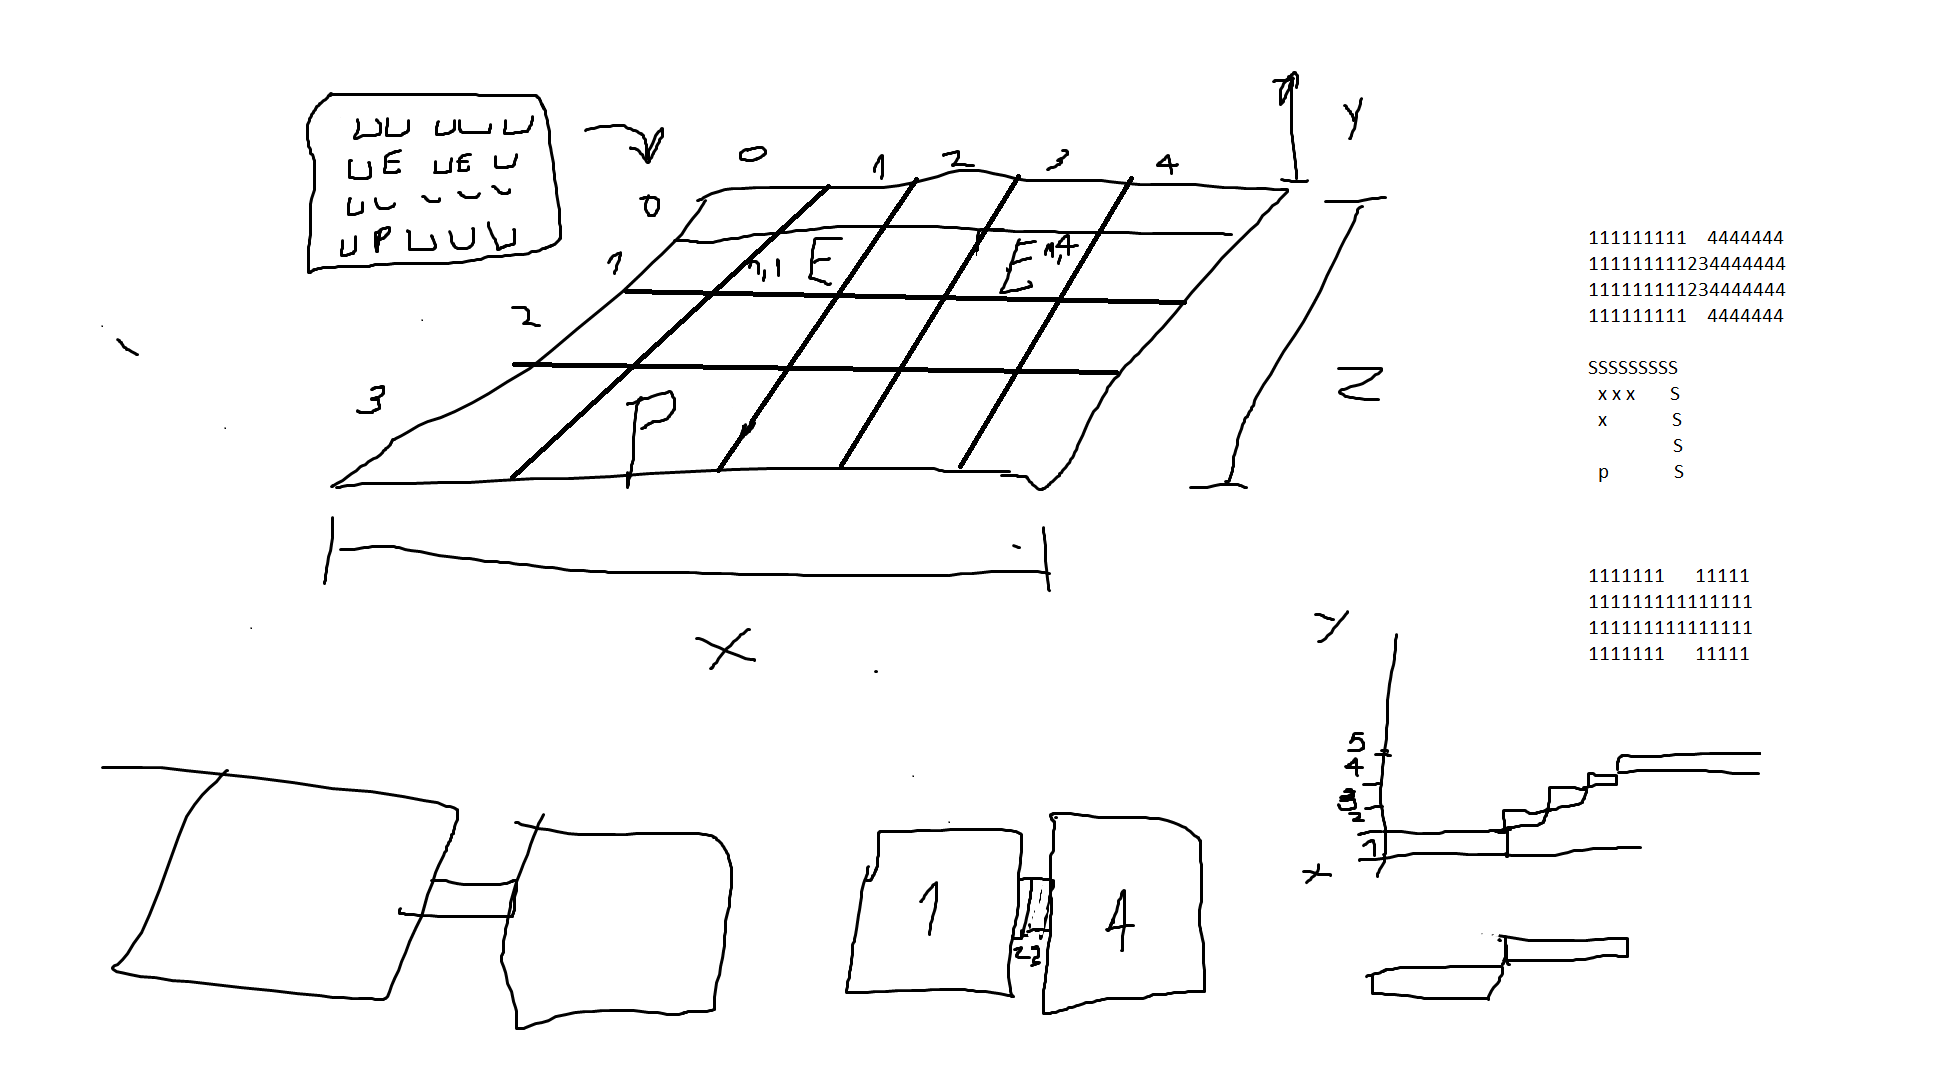 ⊔⊔ ⊔⊔ ⊔
⊔E ⊔E ⊔
⊔⊔ ⊔ ⊔ ⊔
⊔P ⊔ ⊔ ⊔
Y
0 1 2 3 4
0
1
2
3
1,1 E
E 1,4
P
Z
X
111111111  4444444
111111111234444444
111111111234444444
111111111  4444444
SSSSSSSSS
x x x    S
x       S
S
p       S
1111111   11111
111111111111111
111111111111111
1111111   11111
y
5
4
3
2
1
x
1
4
2 3